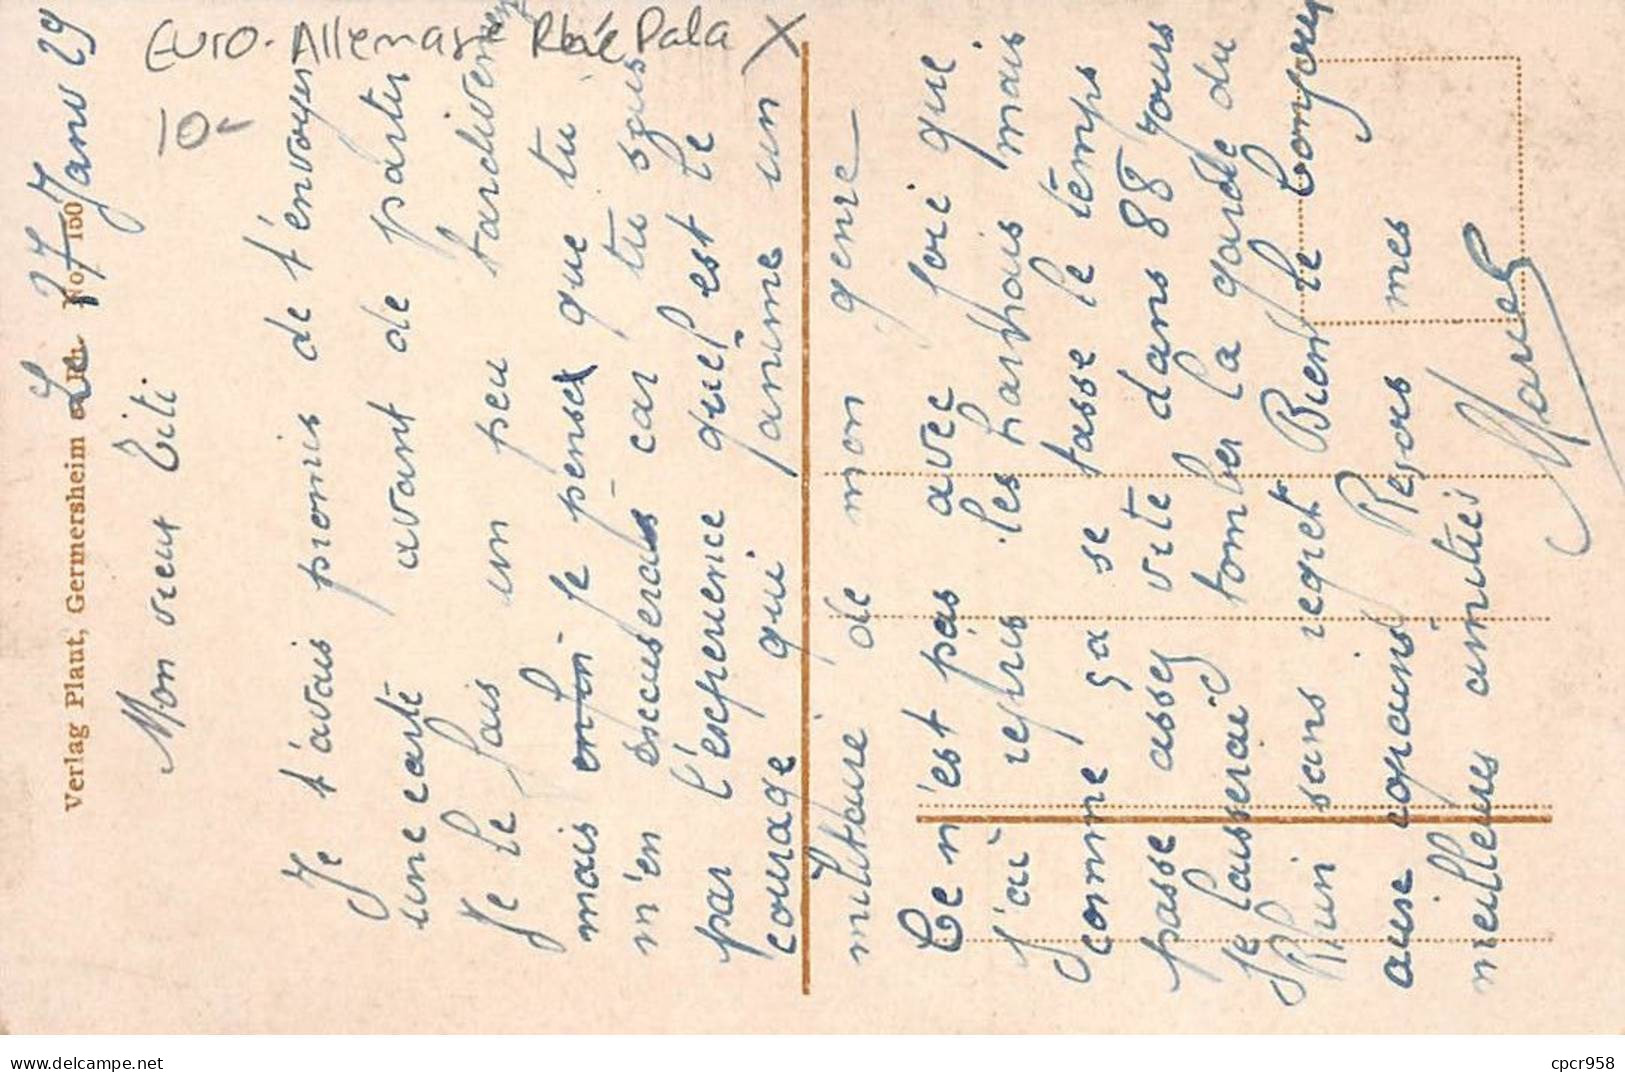 Euro - Allemagne Rhé Pala X
10-
Verlag Plaut, Germersheim a. Rh. No. 150
Le 17 Janv 29
Mon vieux Titi
Je t'avais promis de t'envoyer
une carte avant de partir
Je le fais un peu tardivement
mais enfin je pense que tu
m'en excuserais car tu sais
par l'expérience quel est le
courage qui anime un
militaire de mon genre
Ce n'est pas avec joie que
j'ai repris les harnais mais
comme ça se tasse le temps
passe assez vite dans 88 jours
je laisserai tomber la garde du
Rhin sans regret Bien le bonjour
aux copains Reçois mes
meilleurs amitiés
Marcel
cpcr958